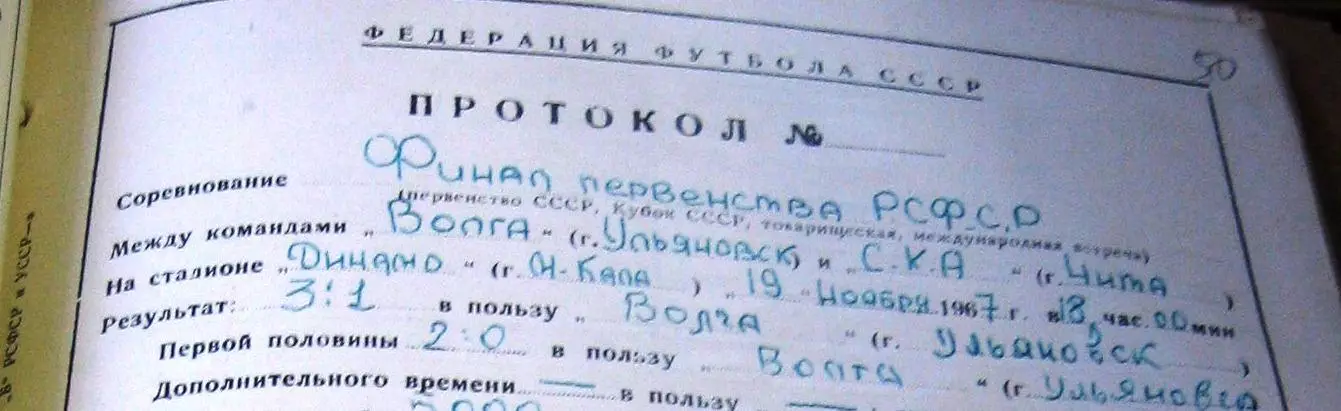 50
ФЕДЕРАЦИЯ ФУТБОЛА СССР
ПРОТОКОЛ №
Соревнование Финал первенства РСФСР
(первенство СССР, Кубок СССР, товарищеская, международная встреча)
Между командами „Волга“ (г. Ульяновск) и „С.К.А“ (г. Чита)
На стадионе „Динамо“ (г. Н-Кала) „19“ Ноября 1967 г. в 18 час. 00 мин
Результат: 3:1 в пользу „Волга“ (г. Ульяновск)
Первой половины 2:0 в пользу „Волга“ (г. Ульяновск
Дополнительного времени — в пользу „ —
РСФСР и УССР—